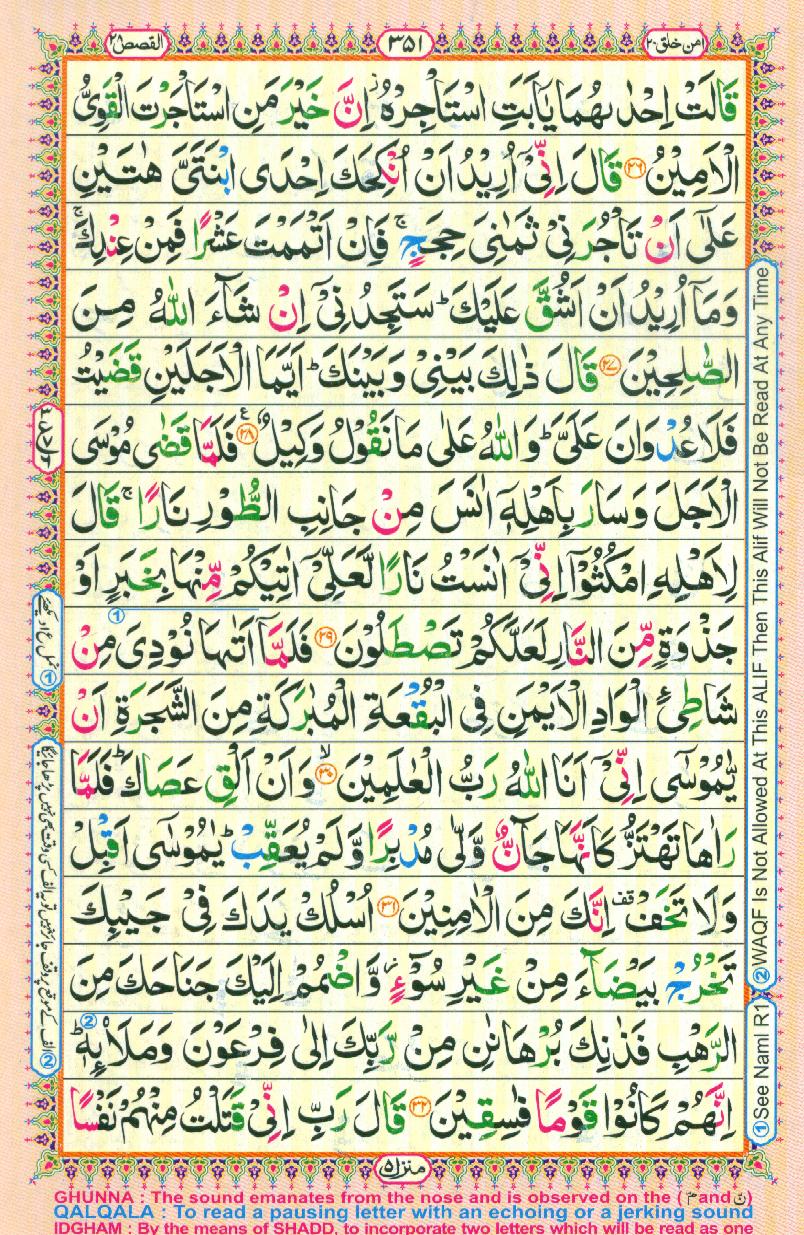 امن خلق ۲۰
۳۵۱
القصص ۲۸
قَالَتْ اِحْدٰىهُمَا يٰٓاَبَتِ اسْتَاْجِرْهُ ؗ اِنَّ خَيْرَ مَنِ اسْتَاْجَرْتَ الْقَوِىُّ
الْاَمِيْنُ ﴿۲۶﴾ قَالَ اِنِّىْٓ اُرِيْدُ اَنْ اُنْكِحَكَ اِحْدَى ابْنَتَىَّ هٰتَيْنِ
عَلٰٓى اَنْ تَاْجُرَنِىْ ثَمٰنِىَ حِجَجٍ ۚ فَاِنْ اَتْمَمْتَ عَشْرًا فَمِنْ عِنْدِكَ ۚ
وَمَآ اُرِيْدُ اَنْ اَشُقَّ عَلَيْكَ ؕ سَتَجِدُنِىْٓ اِنْ شَآءَ اللّٰهُ مِنَ
الصّٰلِحِيْنَ ﴿۲۷﴾ قَالَ ذٰلِكَ بَيْنِىْ وَبَيْنَكَ ؕ اَيَّمَا الْاَجَلَيْنِ قَضَيْتُ
فَلَا عُدْوَانَ عَلَىَّ ؕ وَاللّٰهُ عَلٰى مَا نَقُوْلُ وَكِيْلٌ ﴿۲۸﴾ ع فَلَمَّا قَضٰى مُوْسَى
الْاَجَلَ وَسَارَ بِاَهْلِهٖٓ اٰنَسَ مِنْ جَانِبِ الطُّوْرِ نَارًا ۚ قَالَ
لِاَهْلِهِ امْكُثُوْٓا اِنِّىْٓ اٰنَسْتُ نَارًا لَّعَلِّىْٓ اٰتِيْكُمْ مِّنْهَا بِخَبَرٍ اَوْ
جَذْوَةٍ مِّنَ النَّارِ لَعَلَّكُمْ تَصْطَلُوْنَ ﴿۲۹﴾ فَلَمَّآ اَتٰىهَا نُوْدِىَ مِنْ
شَاطِیٴِ الْوَادِ الْاَيْمَنِ فِى الْبُقْعَةِ الْمُبٰرَكَةِ مِنَ الشَّجَرَةِ اَنْ
يّٰمُوْسٰٓى اِنِّىْٓ اَنَا اللّٰهُ رَبُّ الْعٰلَمِيْنَ ﴿۳۰﴾ ۙ وَاَنْ اَلْقِ عَصَاكَ ؕ فَلَمَّا
رَاٰهَا تَهْتَزُّ كَاَنَّهَا جَآنٌّ وَّلّٰى مُدْبِرًا وَّلَمْ يُعَقِّبْ ؕ يٰمُوْسٰٓى اَقْبِلْ
وَلَا تَخَفْ قف اِنَّكَ مِنَ الْاٰمِنِيْنَ ﴿۳۱﴾ اُسْلُكْ يَدَكَ فِىْ جَيْبِكَ
تَخْرُجْ بَيْضَآءَ مِنْ غَيْرِ سُوْٓءٍ ؗ وَّاضْمُمْ اِلَيْكَ جَنَاحَكَ مِنَ
الرَّهْبِ فَذٰنِكَ بُرْهَانٰنِ مِنْ رَّبِّكَ اِلٰى فِرْعَوْنَ وَمَلَا۟ئِهٖ ؕ
اِنَّهُمْ كَانُوْا قَوْمًا فٰسِقِيْنَ ﴿۳۲﴾ قَالَ رَبِّ اِنِّىْ قَتَلْتُ مِنْهُمْ نَفْسًا
منزل ۵
① See Naml R1 ② WAQF Is Not Allowed At This ALIF Then This Alif Will Not Be Read At Any Time
GHUNNA : The sound emanates from the nose and is observed on the ( نّ and مّ )
QALQALA : To read a pausing letter with an echoing or a jerking sound
IDGHAM : By the means of SHADD, to incorporate two letters which will be read as one